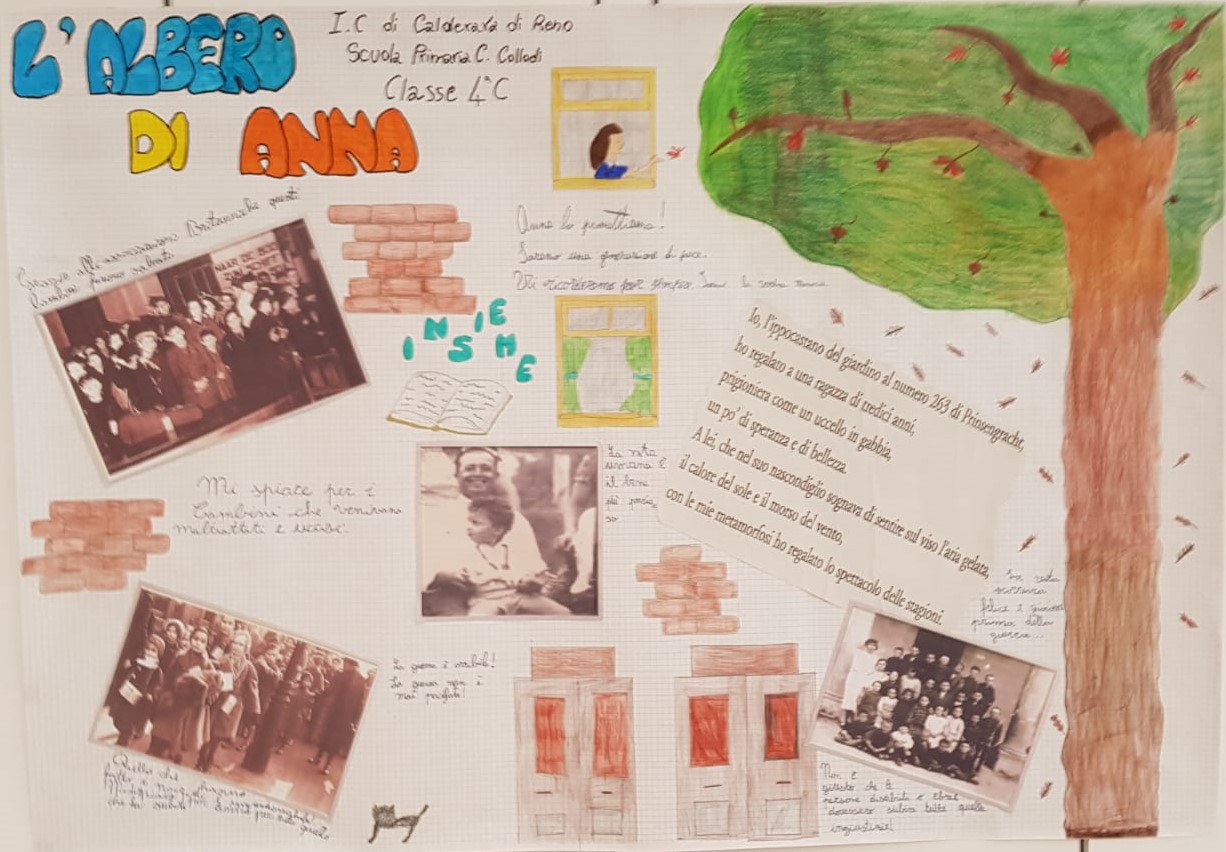 L'ALBERO
DI ANNA
I.C di Calderara di Reno
Scuola Primaria C. Collodi
Classe 4ªC
Grazie alle associazioni Britanniche questi
bambini furono salvati
NAAR DE
INSIEME
Anna lo promettiamo!
Saremo una generazione di pace.
Vi ricorderemo per sempre.
Io, l'ippocastano del giardino al numero 263 di Prinsengracht,
ho regalato a una ragazza di tredici anni,
prigioniera come un uccello in gabbia,
un po' di speranza e di bellezza.
A lei, che nel suo nascondiglio sognava di sentire sul viso l'aria gelata,
il calore del sole e il morso del vento,
con le mie metamorfosi ho regalato lo spettacolo delle stagioni.
Mi spiace per i
bambini che venivano
maltrattati e uccisi.
La vita
umana è
il bene
più prezio
so
La vita
scorreva
felice e
prima della
guerra...
La guerra è orribile!
La guerra non è
mai
Non è
giusto che le
persone disabili e ebree
dovessero subire tutte queste
ingiustizie!